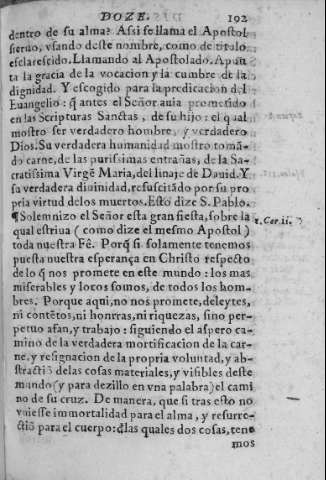 DOZE. 192
dentro de su alma? Assi se llama el Apostol
sieruo, vsando deste nombre, como de titulo
esclarescido. Llamando al Apostolado. Apun
ta la gracia de la vocacion y la cumbre de la
dignidad. Y escogido para la predicacion del
Euangelio: q̃ antes el Señor auia prometido
en las Scripturas Sanctas, de su hijo: el qual
mostro ser verdadero hombre, y verdadero
Dios. Su verdadera humanidad mostro tomã-
do carne, de las purissimas entrañas, de la Sa-
cratissima Virgẽ Maria, del linaje de Dauid. Y
su verdadera diuinidad, resuscitãdo por su pro
pria virtud delos muertos. Esto dize S. Pablo.
¶Solemnizo el Señor esta gran fiesta, sobre la
qual estriua (como dize el mesmo Apostol) 1. Cor. 15.
toda nuestra Fê. Porq̃ si solamente tenemos
puesta nuestra esperança en Christo respecto
de lo q̃ nos promete en este mundo: los mas
miserables y locos somos, de todos los hom-
bres. Porque aqui, no nos promete, deleytes,
ni contẽtos, ni honrras, ni riquezas, sino per-
petuo afan, y trabajo: siguiendo el aspero ca-
mino de la verdadera mortificacion de la car-
ne, y resignacion de la propria voluntad, y ab-
stractiõ delas cosas materiales, y visibles deste
mundo (y para dezillo en vna palabra) el cami
no de su cruz. De manera, que si tras esto no
vuiesse immortalidad para el alma, y resurre-
ctiõ para el cuerpo: d̃las quales dos cosas, tene
mos